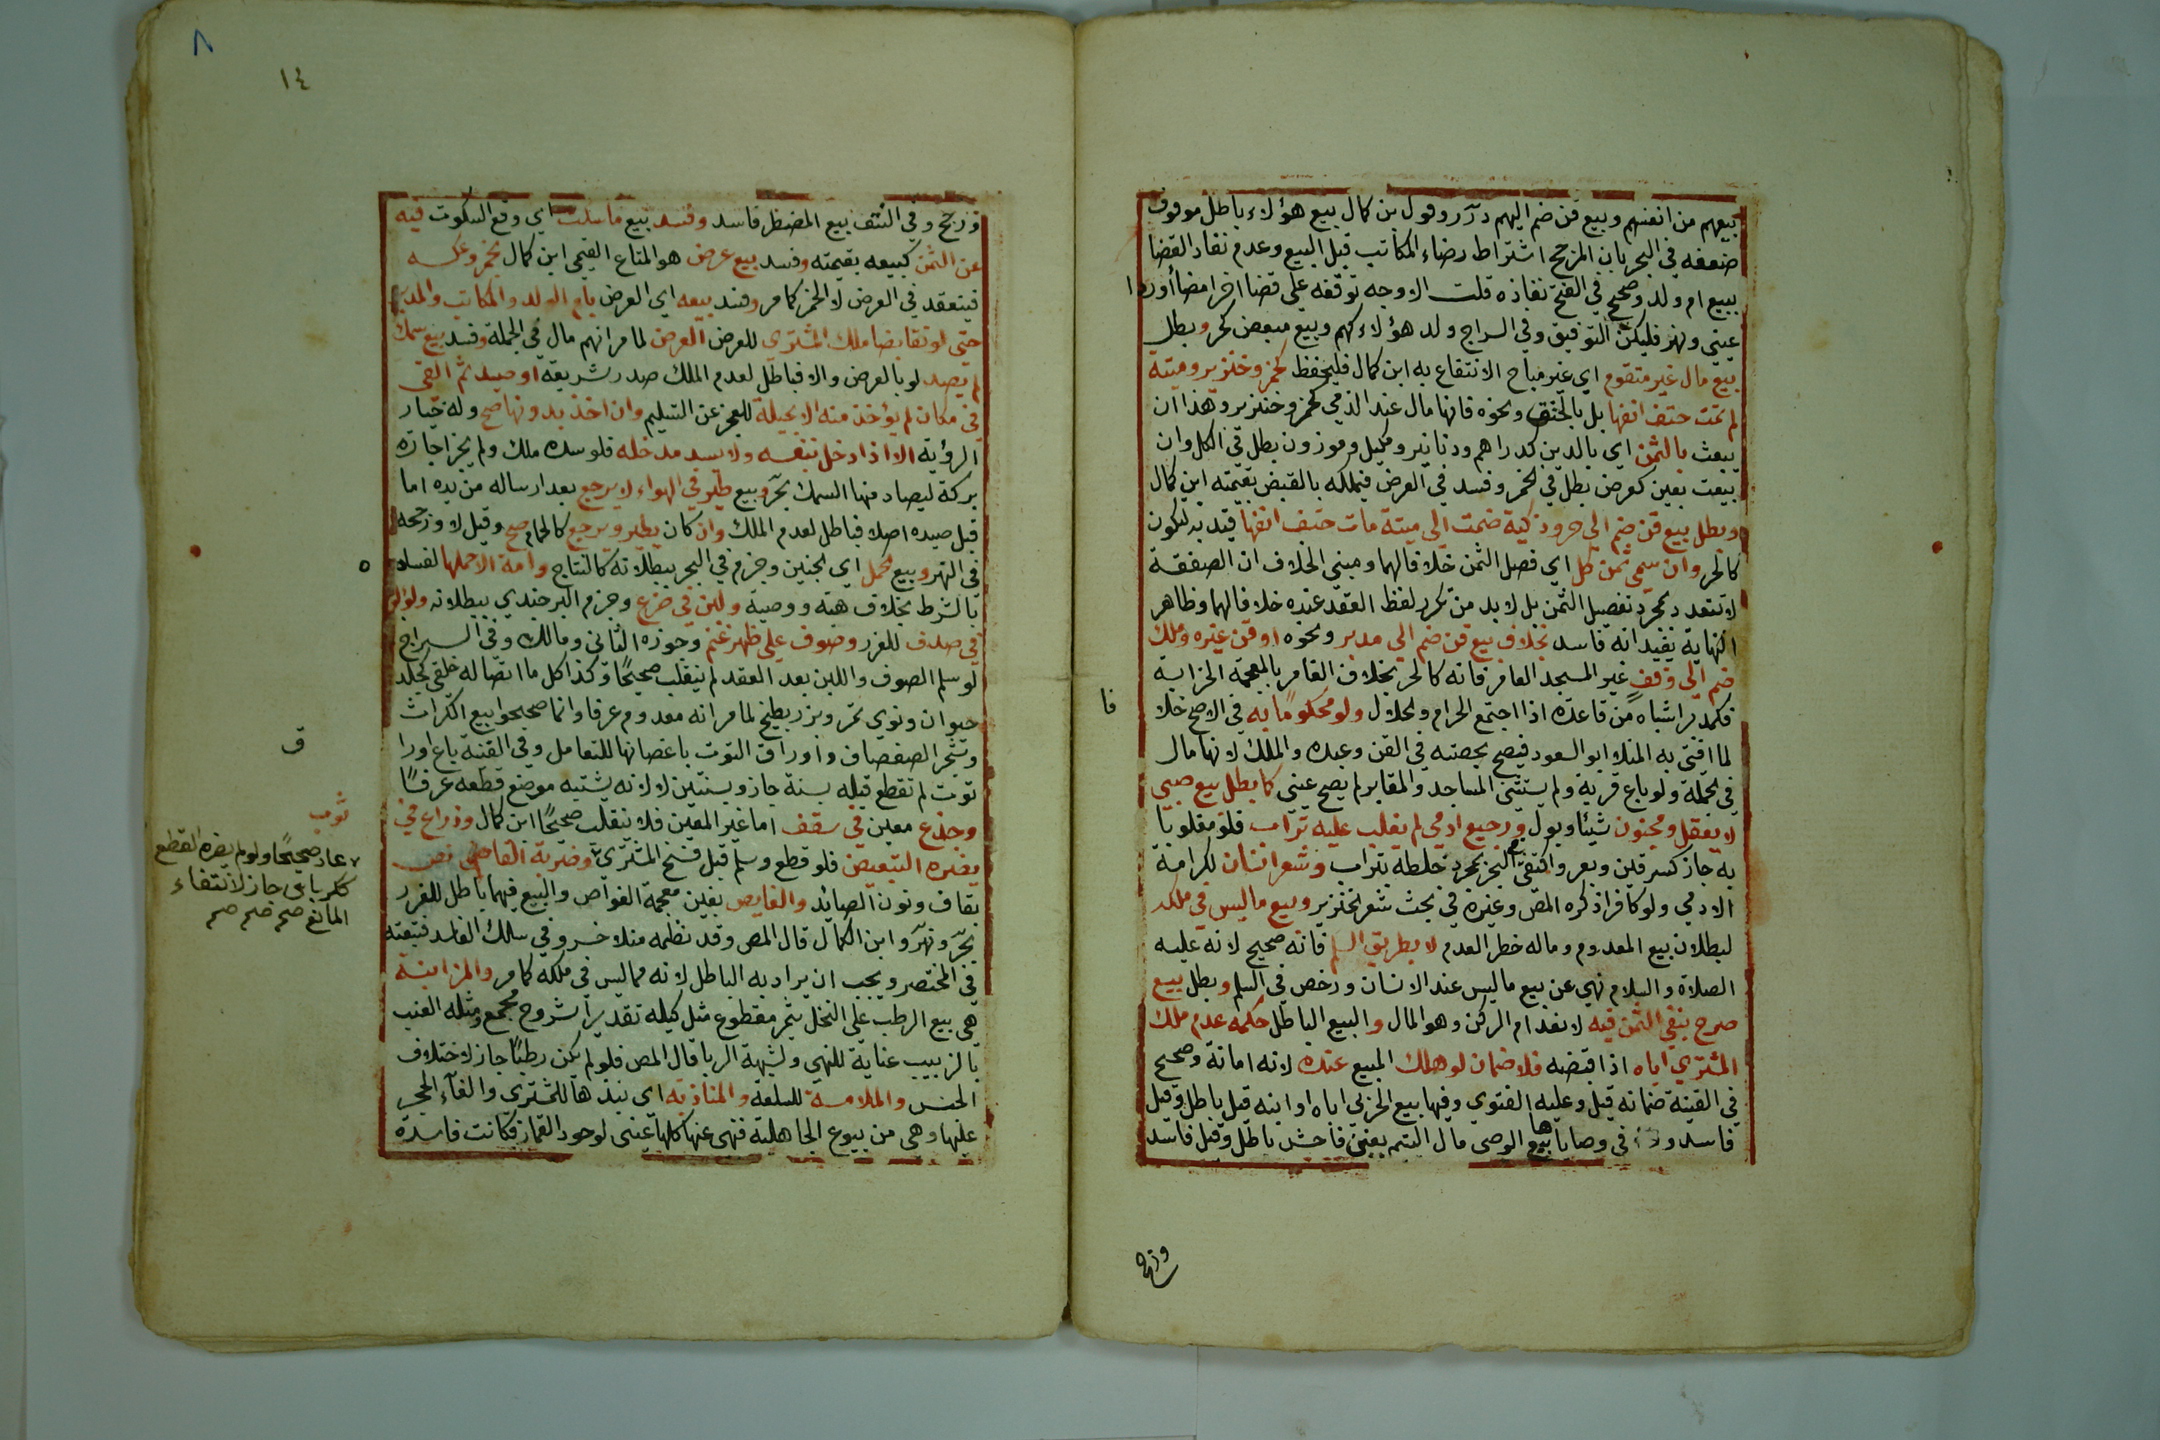 بيعهم من انفسهم وبيع قن ضم اليهم درر وقول بن كمال بيع هؤلاء باطل موقوف
ضعفه في البحر بان المرجح اشتراط رضاء المكاتب قبل البيع وعدم نفاد القضا
ببيع ام ولد وصحح في الفتح نفاذه قلت الاوجه توقفه على قضا اخر امضأ أو رد ا
عيني ونهر فليكن التوفيق وفي السراج ولد هؤلاء كهم وبيع مبعض كحر وبطل
بيع مال غير متقوم اي غير مباح الانتفاع به ابن كمال فليحفظ كخمر وخنزير وميتة
لم تمت حتف انفها بل بالخنق ونحوه فانها مال عند الذمي كخمر وخنزير وهذا ان
بيعت بالثمن اي بالدين كدراهم ودنانير ومكيل وموزون بطل في الكل وان
بيعت بعين كعرض بطل في الخمر وفسد في العرض فيملكه بالقبض بقيمته ابن كمال
وبطل بيع قن ضم الى حر وذكية ضمت الى ميتة مات حتف انفها قيد به لتكون
كالحر وان سمى ثمن كل اي فصل الثمن خلافا لهما ومبنى الخلاف ان الصفقة
لا تتعدد بمجرد تفصيل الثمن بل لا بد من تكرر لفظ العقد عنده خلافا لهما وظاهر
النهاية يفيد انه فاسد بخلاف بيع قن ضم الى مدبر ونحوه او قن غيره وملك
ضم الى وقف غير المسجد العامر فانه كالحر بخلاف الغامر بالمعجمة الخراب
فكمدبر اشباه من قاعدة اذا اجتمع الحرام والحلال ولو محكوما به في الاصح خلا
فا
لما افتى به المنلا ابو السعود فيصح بحصته في القن وعبده والملك لانها مال
في الجملة ولو باع قرية ولم يستثن المساجد والمقابر لم يصح عيني كما بطل بيع صبي
لا يعقل ومجنون شيئا وبول ورجيع ادمي لم يغلب عليه تراب فلو مغلوبا
به جاز كسرقين وبعر واكتفى في البحر بمجرد خلطه بتراب وشعر انسان لكرامة
الادمي ولو كافرا ذكره المص وغيره في بحث شعر الخنزير وبيع ما ليس في ملكه
لبطلان بيع المعدوم وماله خطر العدم لا بطريق السلم فانه صحيح لانه عليه
الصلاة والسلام نهي عن بيع ما ليس عند الانسان ورخص في السلم وبطل بيع
صرح بنفي الثمن فيه لانعدام الركن وهو المال والبيع الباطل حكمه عدم ملك
المشتري اياه اذا قبضه فلا ضمان لو هلك المبيع عنده لانه امانة وصحح
في القنية ضمانه قيل وعليه الفتوى وفيها بيع الحربي اباه او ابنه قيل باطل وقيل
فاسد و في وصاياها بيع الوصي مال اليتيم بغبن فاحش باطل وقيل فاسد
ورجح
٨
١٤
ورجح وفي النتف بيع المضطر فاسد وفسد بيع ما سكت اي وقع السكوت فيه
عن الثمن كبيعه بقيمته وفسد بيع عرض هو المتاع القيمي ابن كمال بخمر وعكسه
فينعقد في العرض لا الخمر كما مر وفسد بيعه اي العرض بام الولد والمكاتب والمدبر
حتى لو تقابضا ملك المشتري للعرض العرض لما مر انهم مال في الجملة وفسد بيع سمك
لم يصد لو بالعرض والا فباطل لعدم الملك صدر شريعة او صيد ثم القي
في مكان لم يؤخذ منه الا بحيلة للعجز عن التسليم وان اخذ بدونها صح وله خيار
الرؤية الا اذا دخل بنفسه ولا يسد مدخله فلو سده ملك ولم يجز اجارة
بركة ليصاد منها السمك بحر وبيع طير في الهواء لا يرجع بعد ارساله من يده اما
قبل صيده اصلا فباطل لعدم الملك وان كان يطير ويرجع كالحمام صح وقيل لا ورجحه
في النهر وبيع الحمل اي الجنين وجزم في البحر ببطلانه كالنتاج وامة الا حملها لفساده
بالشرط بخلاف هبة ووصية ولبن في ضرع وجزم البرجندي ببطلانه ولؤلؤ
في صدف للغرر وصوف على ظهر غنم وجوزه الثاني ومالك وفي السراج
لو سلم الصوف واللبن بعد العقد لم ينقلب صحيحًا وكذا كل ما اتصاله خلقي كجلد
حيوان ونوى تمر وبزر بطيخ لما مر انه معدوم عرفا وانما صححوا بيع الكراث
وشجر الصفصاف واوراق التوت باغصانها للتعامل وفي القنية باع اورا
ق
توت لم تقطع قبله بسنة جاز وبسنتين لا لانه يشتبه موضع قطعه عرفًا
وجذع معين في سقف اما غير المعين فلا ينقلب صحيحًا ابن كمال وذراع في
ثوب
يضره التبعيض فلو قطع وسلم قبل فسخ المشتري وضربة القانص
عاد صحيحًا ولو لم يضره القطع
ككرباس جاز لانتفاء
المانع صح صح صح
بقاف ونون الصائد والغايص بغين معجمة الغواص والبيع فيهما باطل للغرر
بحر ونهر وابن الكمال قال المص وقد نظمه منلا خسرو في سلك الفاسد فتبعته
في المختصر ويجب ان يراد به الباطل لانه مما ليس في ملكه كما مر والمزابنة
هي بيع الرطب على النخل بتمر مقطوع مثل كيله تقديرا شروح مجمع ومثله العنب
بالزبيب عناية للنهي ولشبهة الربا قال المص فلو لم يكن رطبًا جاز لاختلاف
الجنس والملامسة للسلعة والمنابذة اي نبذها للمشتري والقآء الحجر
عليها وهي من بيوع الجاهلية فنهي عنها كلها عيني لوجود القمار فكانت فاسدة